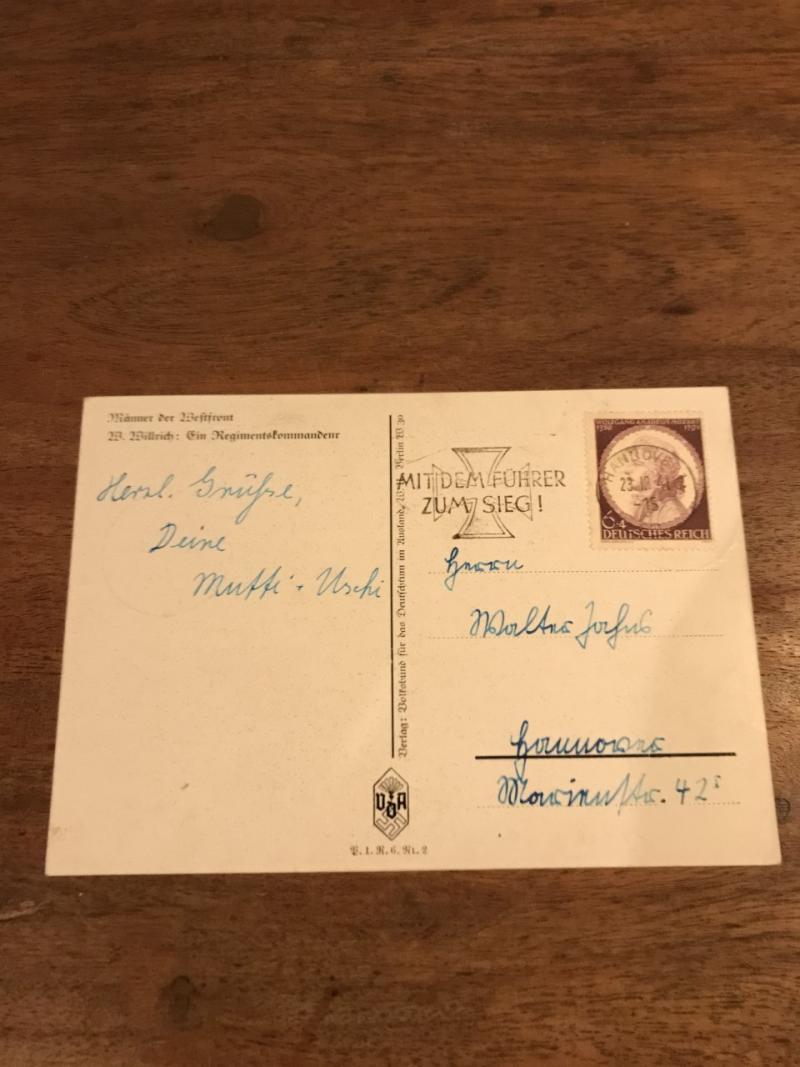 Männer der Westfront
W. Willrich: Ein Regimentskommandeur
Herzl. Grüße,
Deine
Mutti - Uschi
Verlag: Volksbund für das Deutschtum im Ausland, Berlin W 30
VDA
MIT DEM FÜHRER
ZUM SIEG!
WOLFGANG AMADEUS MOZART
HANNOVER
23.
6+4
DEUTSCHES REICH
Herrn
Walter Jahns
Hannover
Marienstr. 42